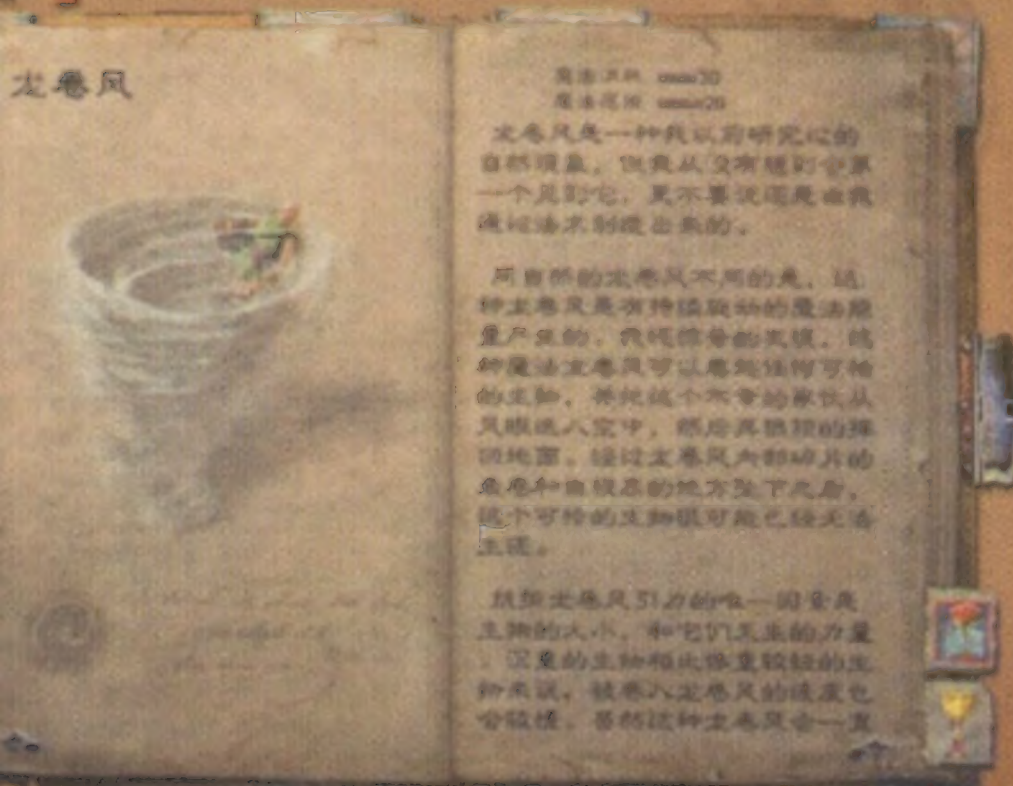 龙卷风
魔法消耗 30
魔法范围 20
龙卷风是一种我以前研究过的
自然现象，但我从没有想到会第
一个见到它，更不要说还是由我
通过法术制造出来的。
同自然的龙卷风不同的是，这
种龙卷风是有持续驱动的魔法能
量产生的，
种魔法龙卷风可以卷起任何可怜
的生物，并把这个不幸的家伙从
风眼送入空中，然后再狠狠的摔
回地面。经过龙卷风内部碎片的
的地方坠下之后，
这个可怜的生物很可能已经无法
生还。
抗拒龙卷风引力的唯一因素是
生物的大小，和它们天生的力量
。沉重的生物相比体重较轻的生
物来说，被卷入龙卷风的速度也
会较慢。虽然这种龙卷风会一直